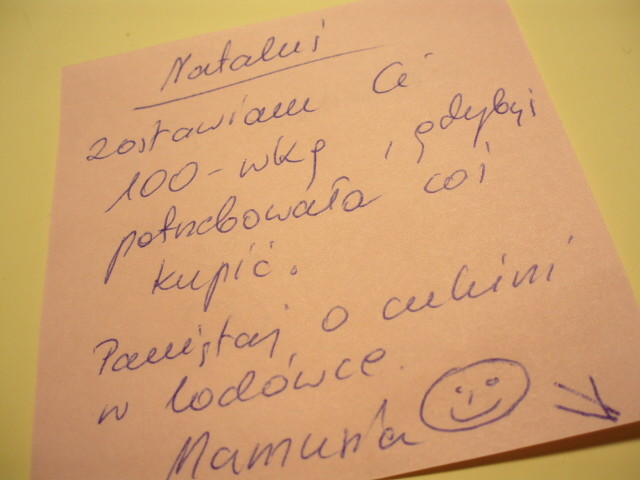 Nataluś
zostawiam Ci
100-wkę, gdybyś
potrzebowała coś
kupić.
Pamiętaj o cukinii
w lodówce.
Mamusia